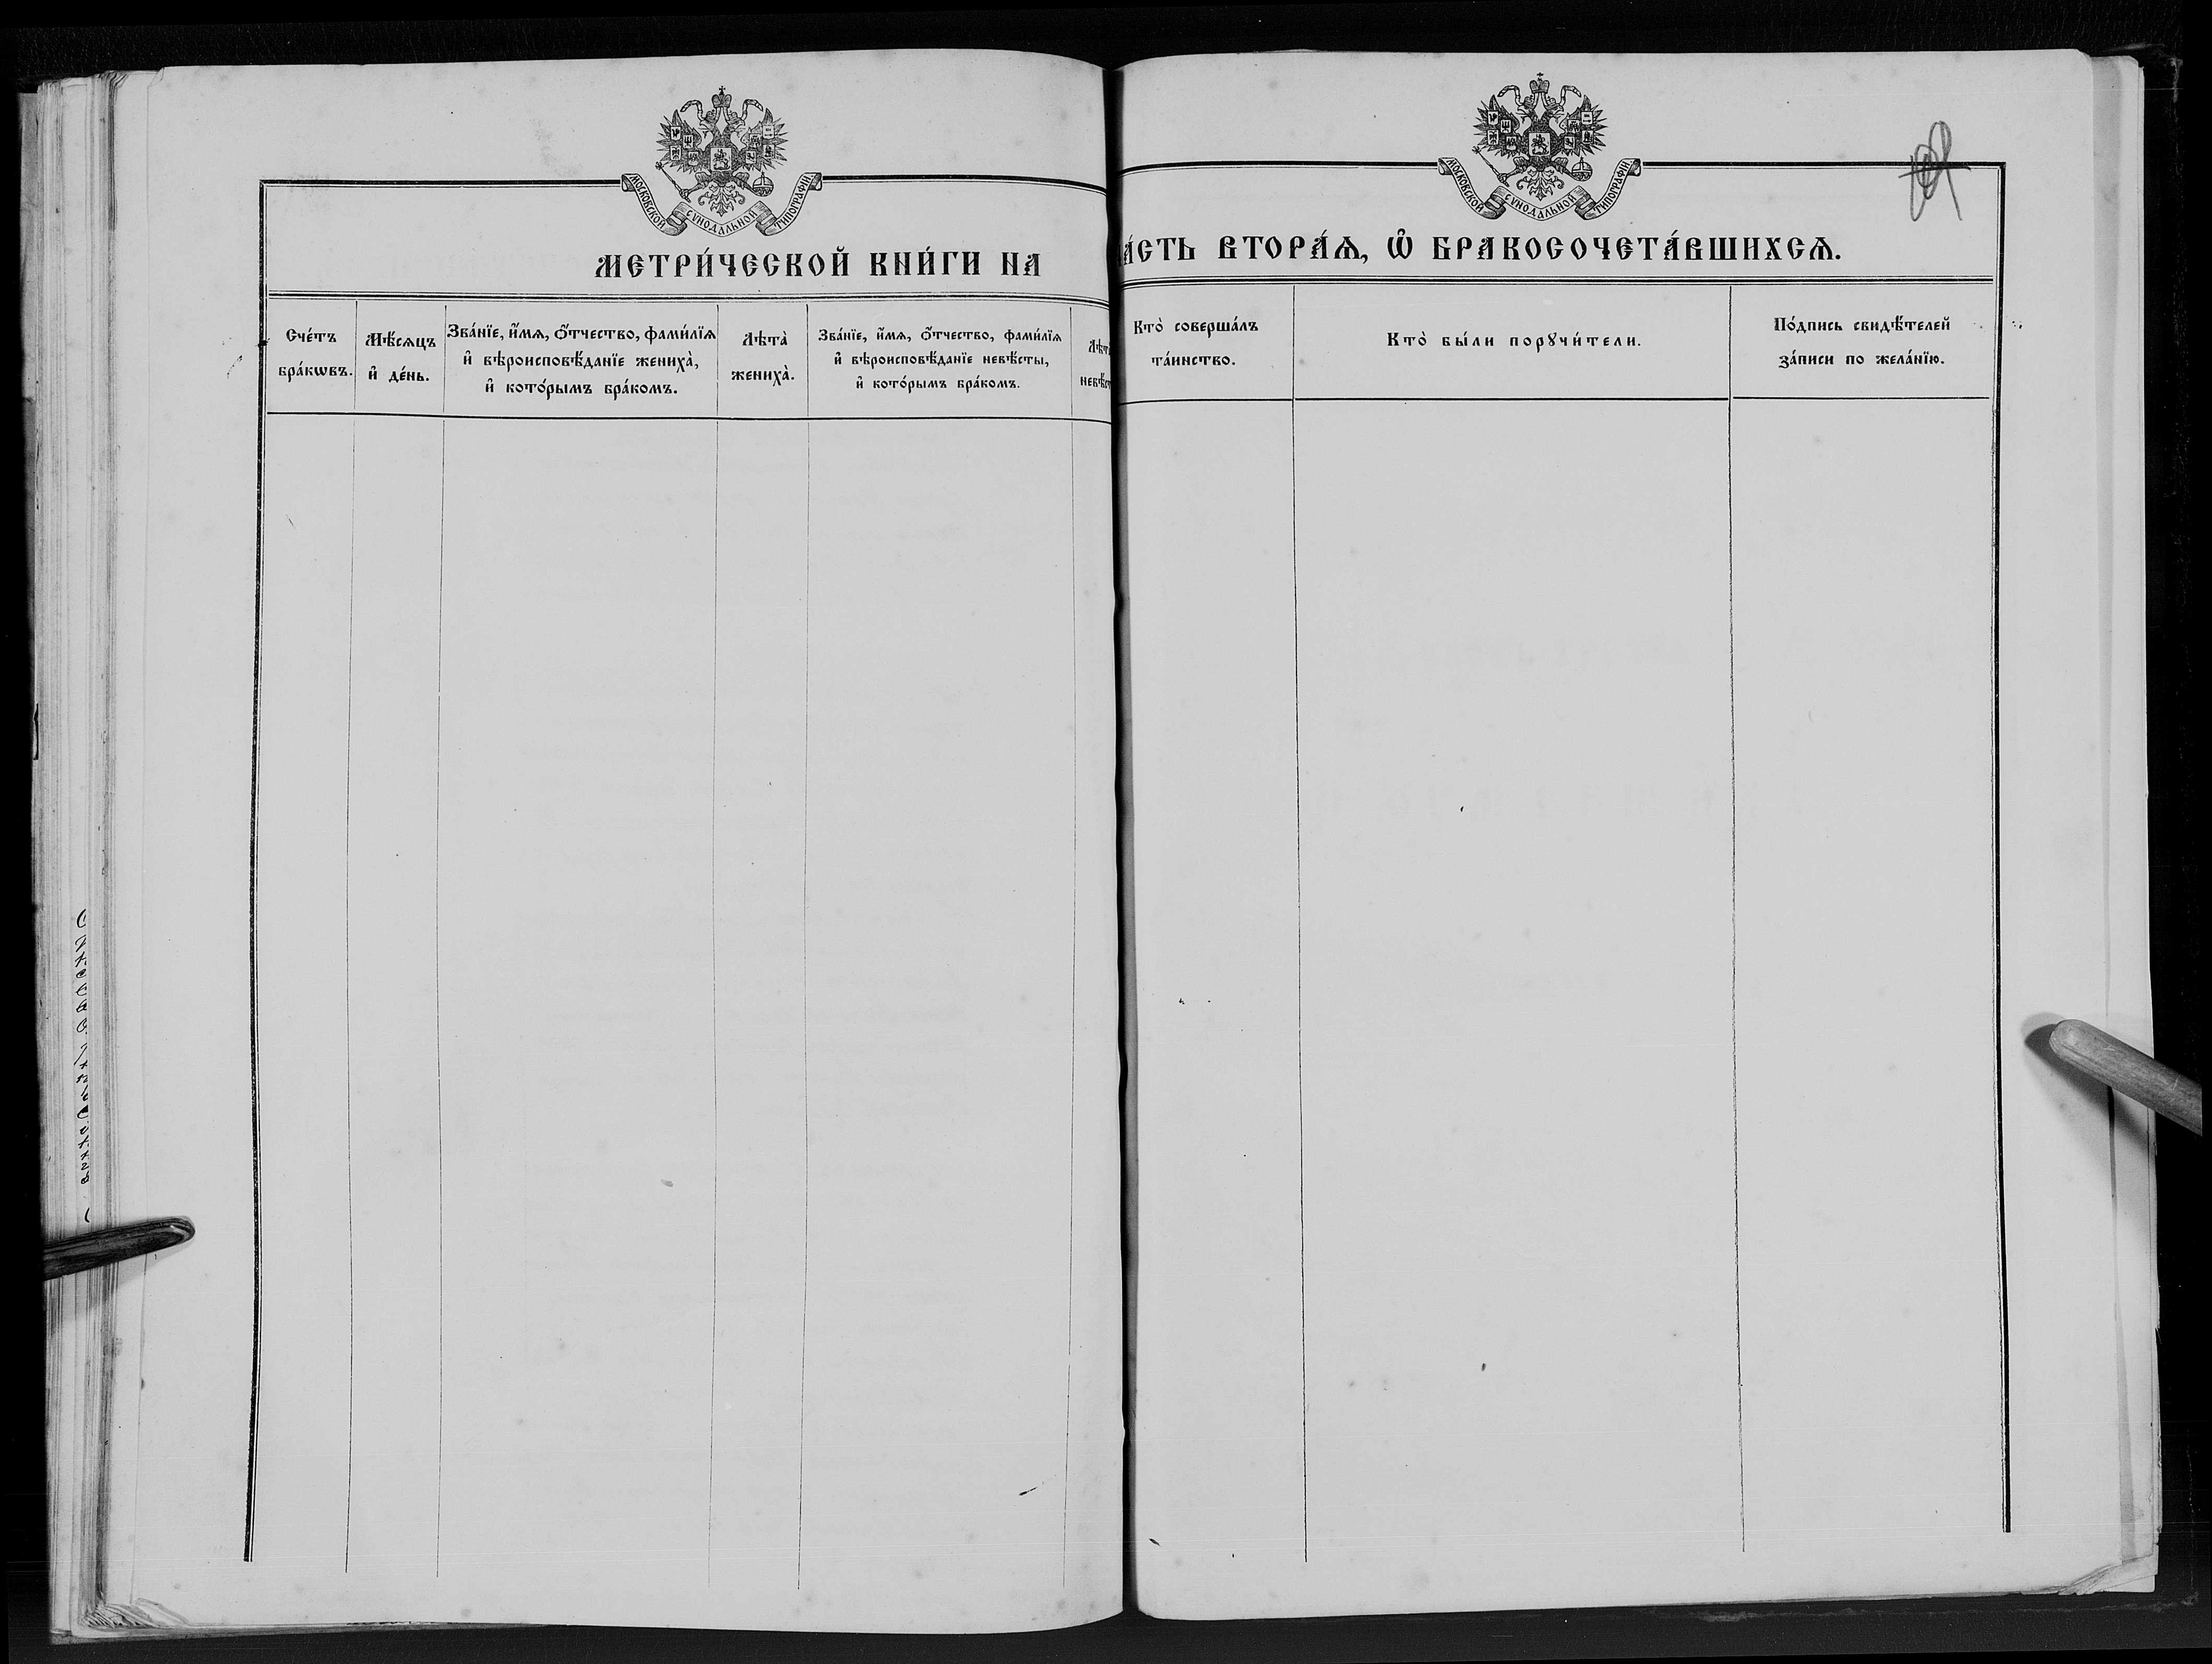 МОСКОВСКОЙ СѴНОДАЛЬНОЙ ТИПОГРАФІИ
МЕТРИ́ЧЕСКОЙ КНИ́ГИ НА
Сче́тъ
бра́кѡвъ.
Мѣ́сѧцъ
и҆ де́нь.
Зва́нїе, и҆́мѧ, ѻ҆́тчество, фами́лїѧ
и҆ вѣроисповѣ́данїе жениха̀,
и҆ кото́рымъ бра́комъ.
Лѣта̀
жениха̀.
Зва́нїе, и҆́мѧ, ѻ҆́тчество, фами́лїѧ
и҆ вѣроисповѣ́данїе невѣ́сты,
и҆ кото́рымъ бра́комъ.
Лѣт
невѣ́с
МОСКОВСКОЙ СѴНОДАЛЬНОЙ ТИПОГРАФІИ
А́СТЬ ВТОРА́Ѧ, Ѡ҆ БРАКОСОЧЕТА́ВШИХСѦ.
Кто̀ соверша́лъ
та́инство.
Кто̀ бы́ли порꙋчи́тели.
По́дпись свидѣ́телей
за́писи по жела́нїю.